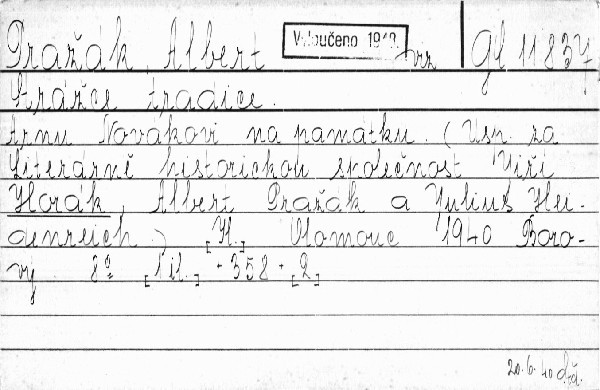 Pražák, Albert Vyloučeno 194 vz Gf 11837
Strážce tradice.
Arnu Novákovi na památku. (Usp. za
Literárně historickou společnost Jiří
Horák, Albert Pražák a Julius Hei-
denreich.) [H.] Olomouc 1940 Boro-
vý 8º [1 il.] - 358 - [2]
20.6.40